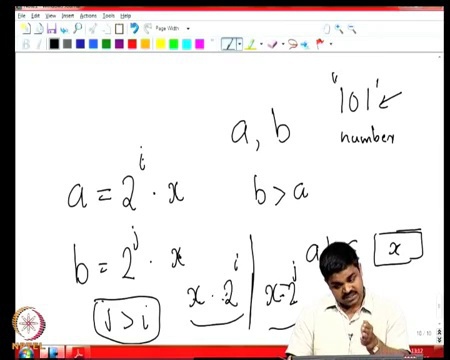 File Edit View Insert Actions Tools Help
Page Width
"101"
number
a, b
a = 2^i · x
b > a
b = 2^j · x
x
j > i
x · 2^i | x = 2^j
10 / 10